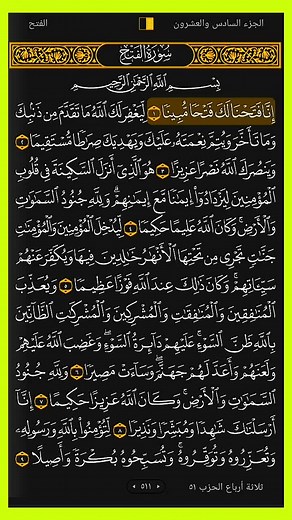 الجزء السادس والعشرون
الفتح
سُورَةُ الفَتْحِ
بِسْمِ اللَّهِ الرَّحْمَٰنِ الرَّحِيمِ
إِنَّا فَتَحْنَا لَكَ فَتْحًا مُّبِينًا ١ لِّيَغْفِرَ لَكَ اللَّهُ مَا تَقَدَّمَ مِن ذَنبِكَ
وَمَا تَأَخَّرَ وَيُتِمَّ نِعْمَتَهُ عَلَيْكَ وَيَهْدِيَكَ صِرَاطًا مُّسْتَقِيمًا ٢
وَيَنصُرَكَ اللَّهُ نَصْرًا عَزِيزًا ٣ هُوَ الَّذِي أَنزَلَ السَّكِينَةَ فِي قُلُوبِ
الْمُؤْمِنِينَ لِيَزْدَادُوا إِيمَانًا مَّعَ إِيمَانِهِمْ ۗ وَلِلَّهِ جُنُودُ السَّمَاوَاتِ
وَالْأَرْضِ ۚ وَكَانَ اللَّهُ عَلِيمًا حَكِيمًا ٤ لِّيُدْخِلَ الْمُؤْمِنِينَ وَالْمُؤْمِنَاتِ
جَنَّاتٍ تَجْرِي مِن تَحْتِهَا الْأَنْهَارُ خَالِدِينَ فِيهَا وَيُكَفِّرَ عَنْهُمْ
سَيِّئَاتِهِمْ ۚ وَكَانَ ذَٰلِكَ عِندَ اللَّهِ فَوْزًا عَظِيمًا ٥ وَيُعَذِّبَ
الْمُنَافِقِينَ وَالْمُنَافِقَاتِ وَالْمُشْرِكِينَ وَالْمُشْرِكَاتِ الظَّانِّينَ
بِاللَّهِ ظَنَّ السَّوْءِ ۚ عَلَيْهِمْ دَائِرَةُ السَّوْءِ ۖ وَغَضِبَ اللَّهُ عَلَيْهِمْ
وَلَعَنَهُمْ وَأَعَدَّ لَهُمْ جَهَنَّمَ ۖ وَسَاءَتْ مَصِيرًا ٦ وَلِلَّهِ جُنُودُ
السَّمَاوَاتِ وَالْأَرْضِ ۚ وَكَانَ اللَّهُ عَزِيزًا حَكِيمًا ٧ إِنَّا
أَرْسَلْنَاكَ شَاهِدًا وَمُبَشِّرًا وَنَذِيرًا ٨ لِّتُؤْمِنُوا بِاللَّهِ وَرَسُولِهِ
وَتُعَزِّرُوهُ وَتُوَقِّرُوهُ ۚ وَتُسَبِّحُوهُ بُكْرَةً وَأَصِيلًا ٩
ثلاثة أرباع الحزب ٥١
٥١١